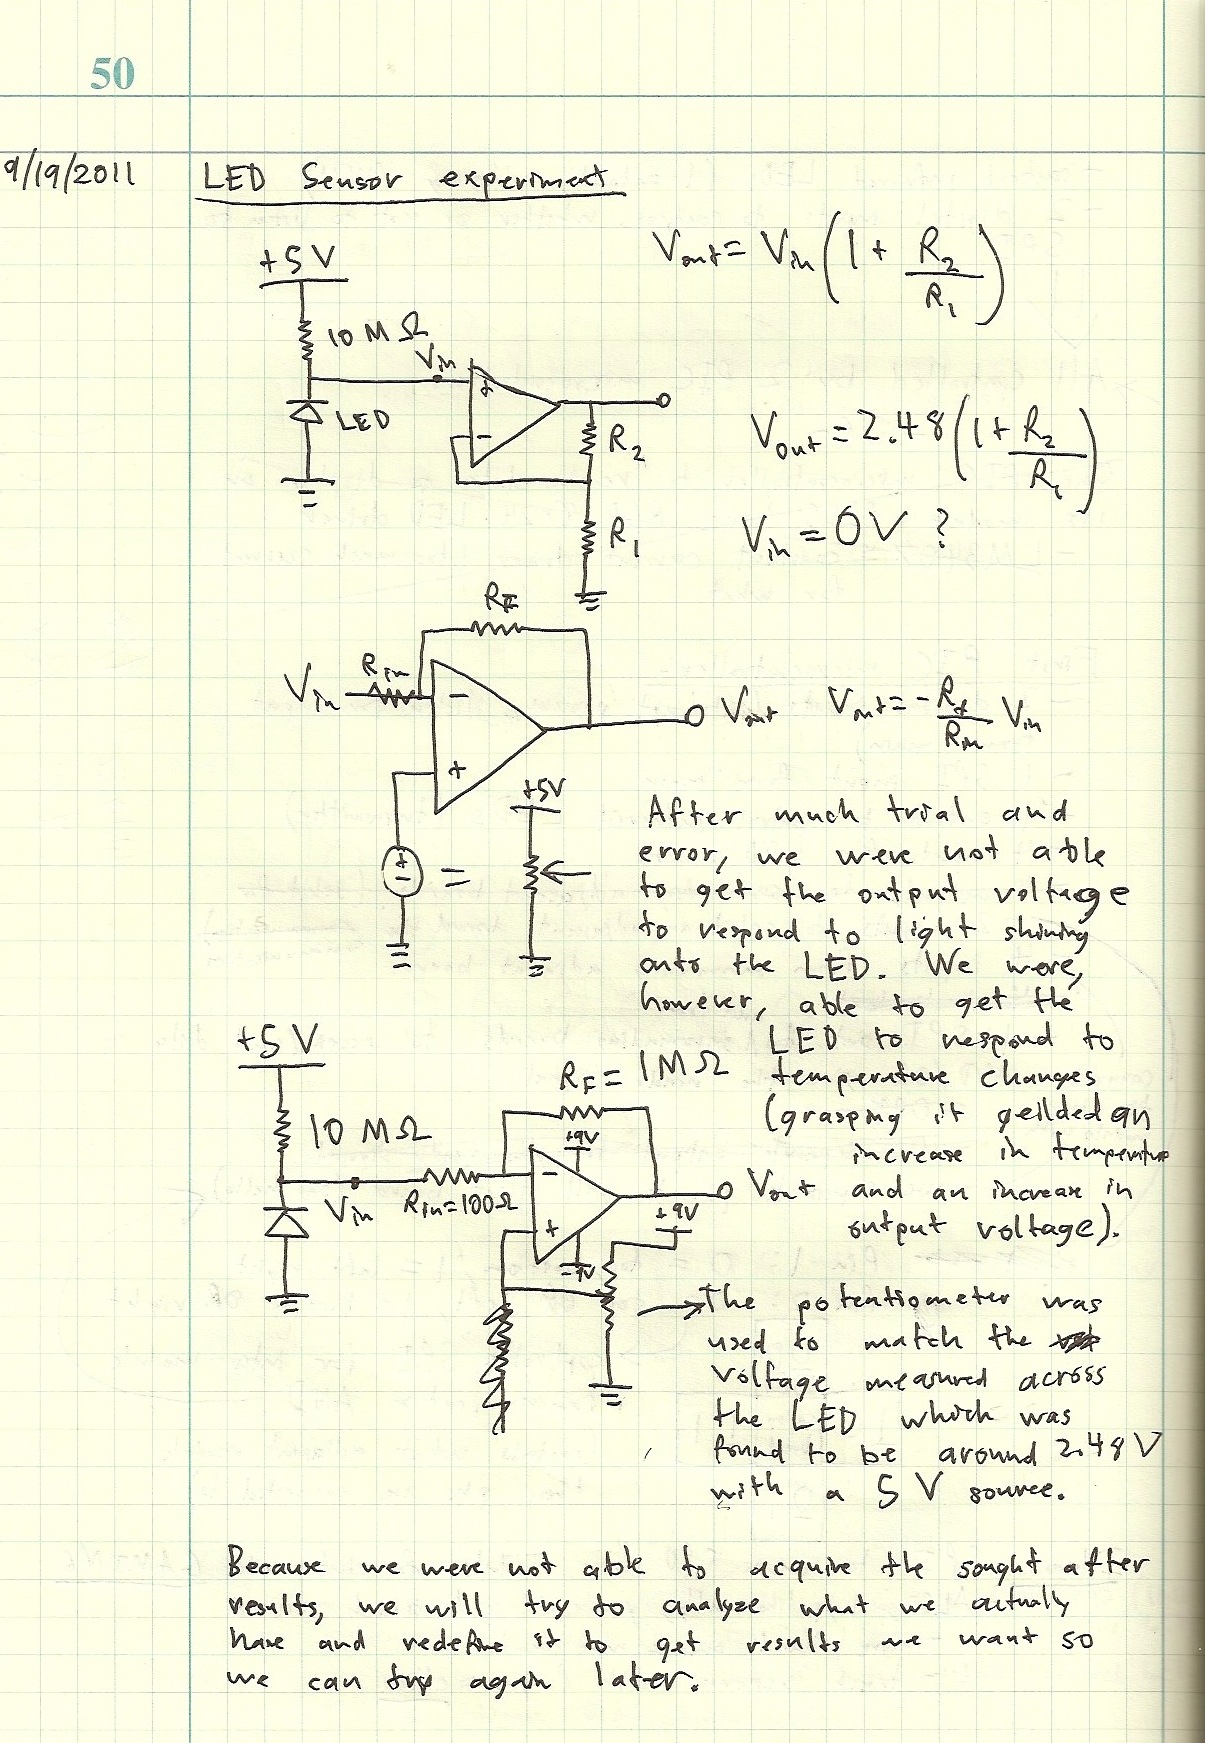 50
9/19/2011 LED Sensor experiment
+5V
Vout = Vin (1 + R2/R1)
10 MΩ
Vin
+
LED
-
R2
Vout = 2.48 (1 + R2/R1)
R1
Vin = 0V ?
RF
Vin Rin
-
Vout Vout = -Rf/Rin Vin
+
+5V
+
-
=
After much trial and
error, we were not able
to get the output voltage
to respond to light shining
onto the LED. We were,
however, able to get the
LED to respond to
temperature changes
(grasping it yeilded an
increase in temperature
and an increase in
output voltage).
+5V
RF = 1MΩ
10 MΩ
+9V
-
Vin Rin=100Ω
Vout
+9V
+
-9V
The potentiometer was
used to match the
voltage measured across
the LED which was
found to be around 2.48V
with a 5 V source.
Because we were not able to acquire the sought after
results, we will try to analyze what we actually
have and redefine it to get results we want so
we can try again later.